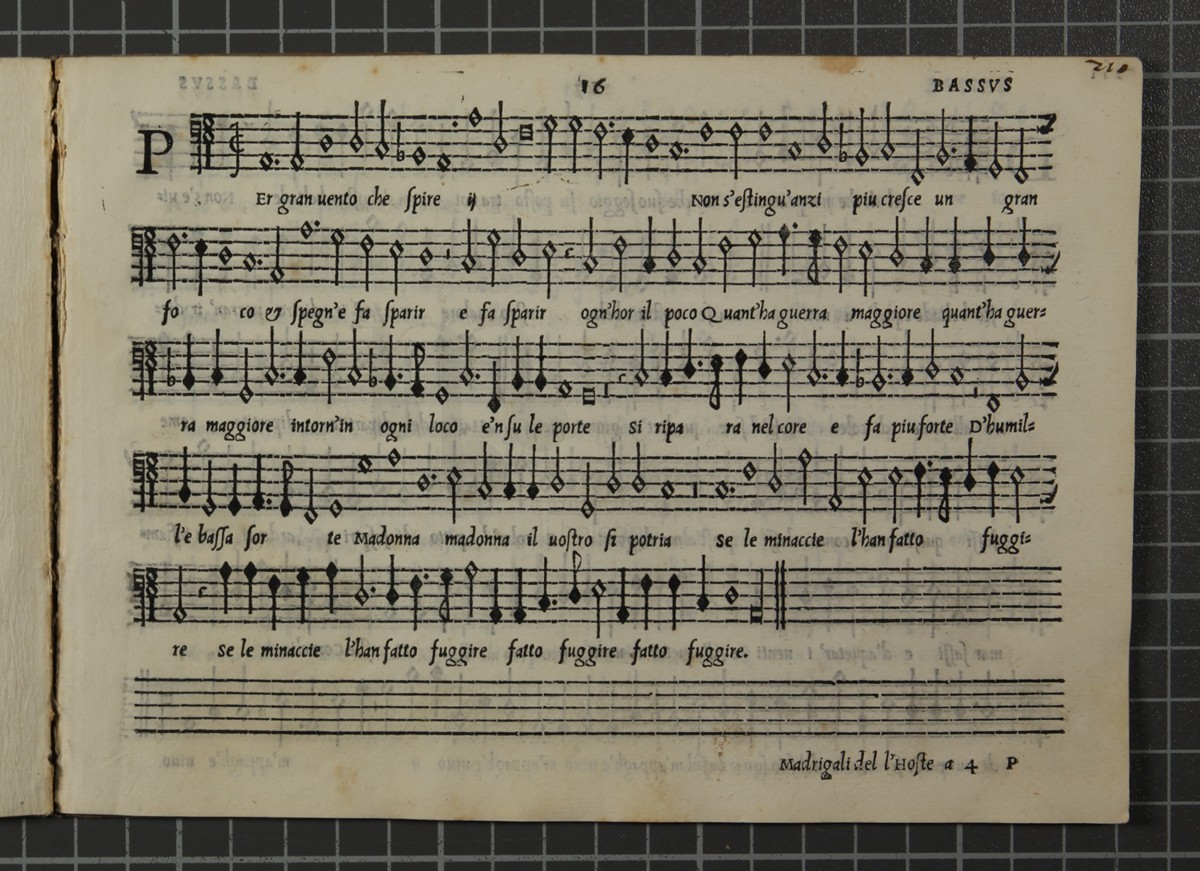 16
BASSVS
210
P
Er gran uento che ſpire ij Non s'eſtingu'anzi piu creſce un gran
fo co & ſpegn'e fa ſparir e fa ſparir ogn'hor il poco Quant'ha guerra maggiore quant'ha guer=
ra maggiore intorn'in ogni loco e'n ſu le porte si ripa ra nel core e fa piu forte D'humil=
l'e baſſa ſor te Madonna madonna il uoſtro ſi potria se le minaccie l'han fatto fuggi=
re se le minaccie l'han fatto fuggire fatto fuggire fatto fuggire.
Madrigali del l'Hoſte a 4 P